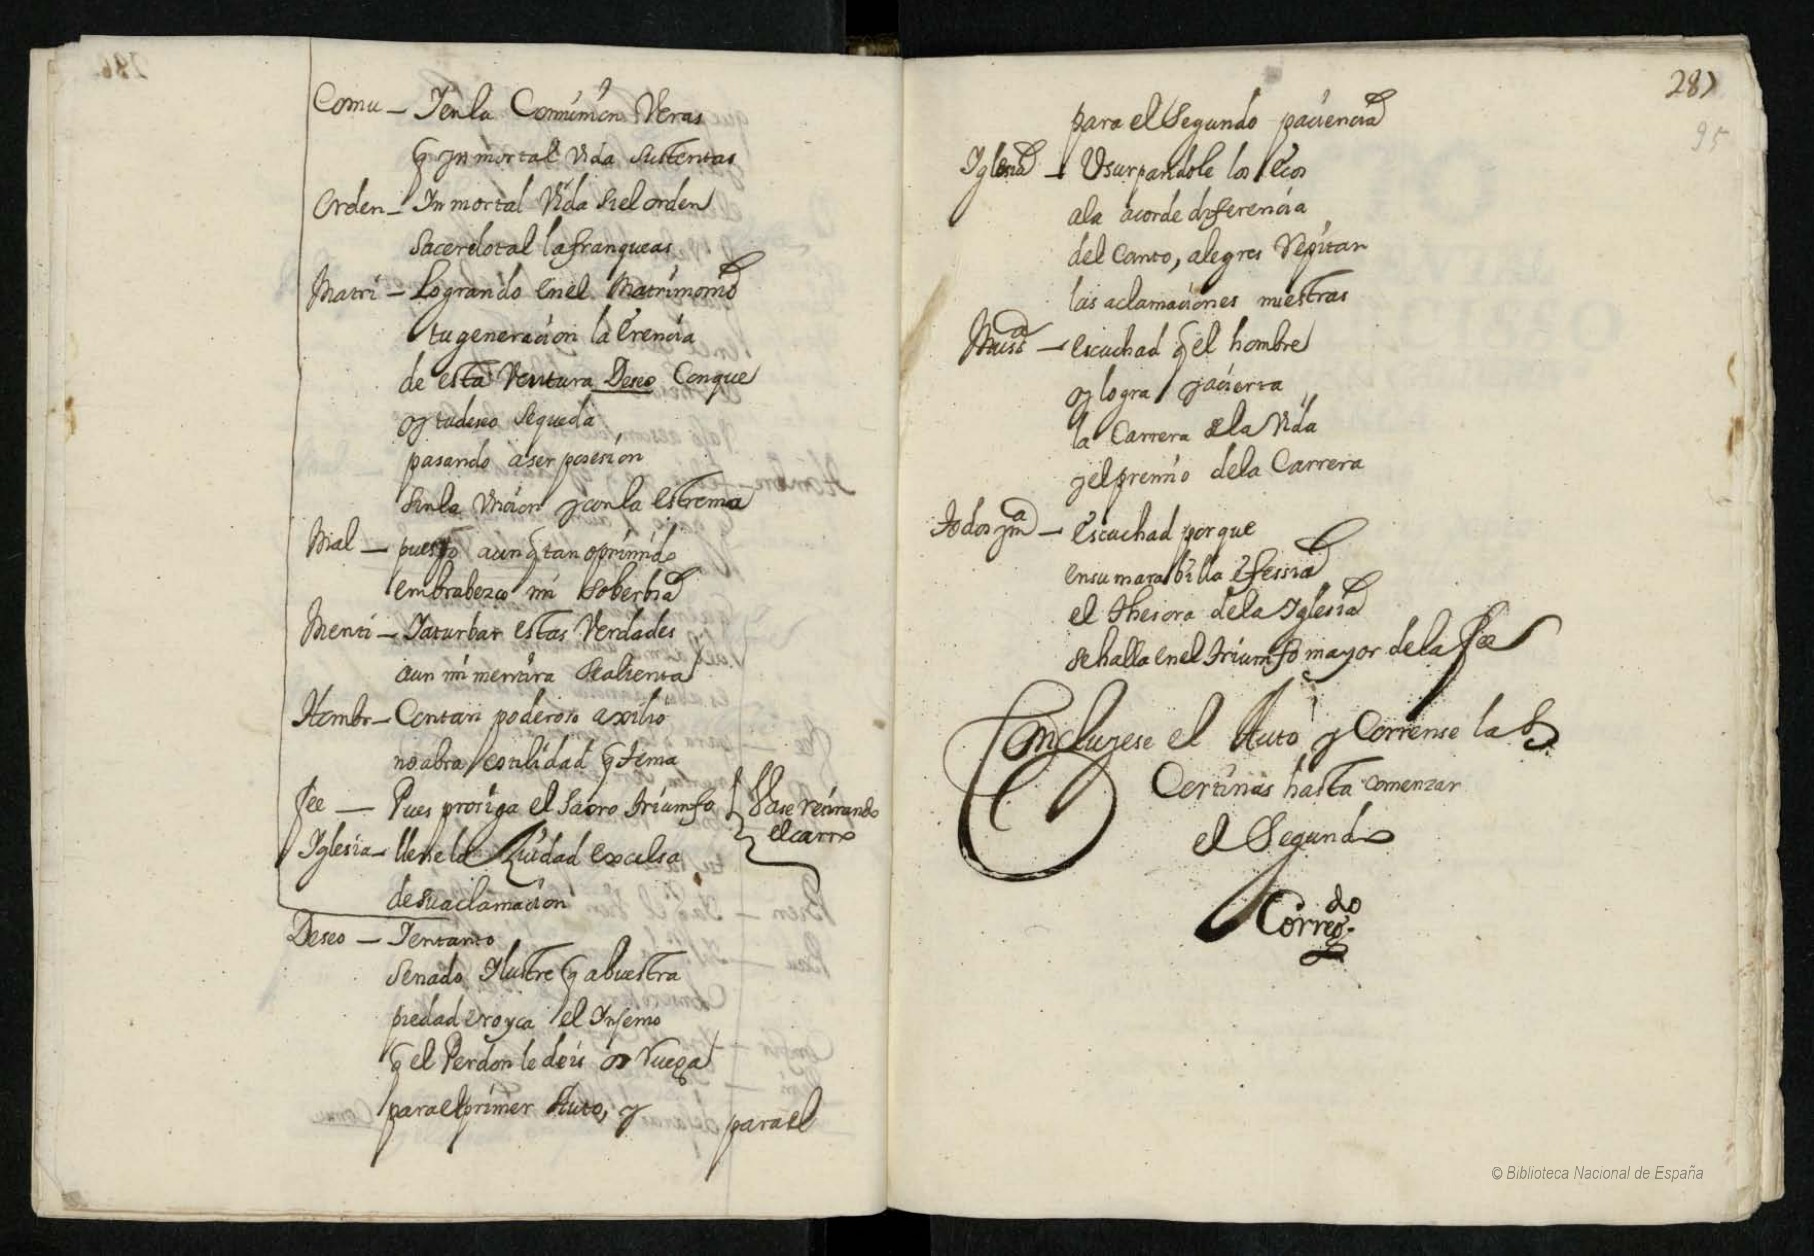 Comu — Ienla Comunion Veras
q ynmortal Vida sustentas
Orden — Inmortal Vida siel orden
Sacerdotal lafranqueas
Matri — Logrando enel Matrimonio
tu generacion la Erencia
de esta Ventura Deseo Conque
oy tudeseo sequeda
pasando aser posesion
sinla Vncion yconla estrema
Mal — puesto aunq tan oprimido
embrabezco mi soberbia
Menti — Iaturbar estas Verdades
aun mi mentira sealienta
Hombr — Contan poderoso axilio
noabra ostilidad q tema
fee — Pues prosiga el Sacro triumfo
Vase retirando
el carro
Iglesia — llene la Ziudad excelsa
desuaclamacion
Deseo — Ientanto
senado Ilustre q abuestra
piedad eroyca el Ingenio
q el Perdon le deis os Ruega
parael primer Auto, y
parael
287
95
para el Segundo paciencia
Iglesia — Vsurpandole los Ecos
ala acorde diferencia
del Canto, alegres Repitan
las aclamaciones nuestras
Musica — escuchad q el hombre
oy logra yacierta
la Carrera dela Vida
yelpremio dela Carrera
Todos y Ma — Escuchad porque
ensu marabilla
el thesoro dela Iglesia
sehalla enel triumfo mayor dela fee
Concluyese el Auto y Corrense las
Cortinas hasta comenzar
el Segundo
Corregdo
© Biblioteca Nacional de España